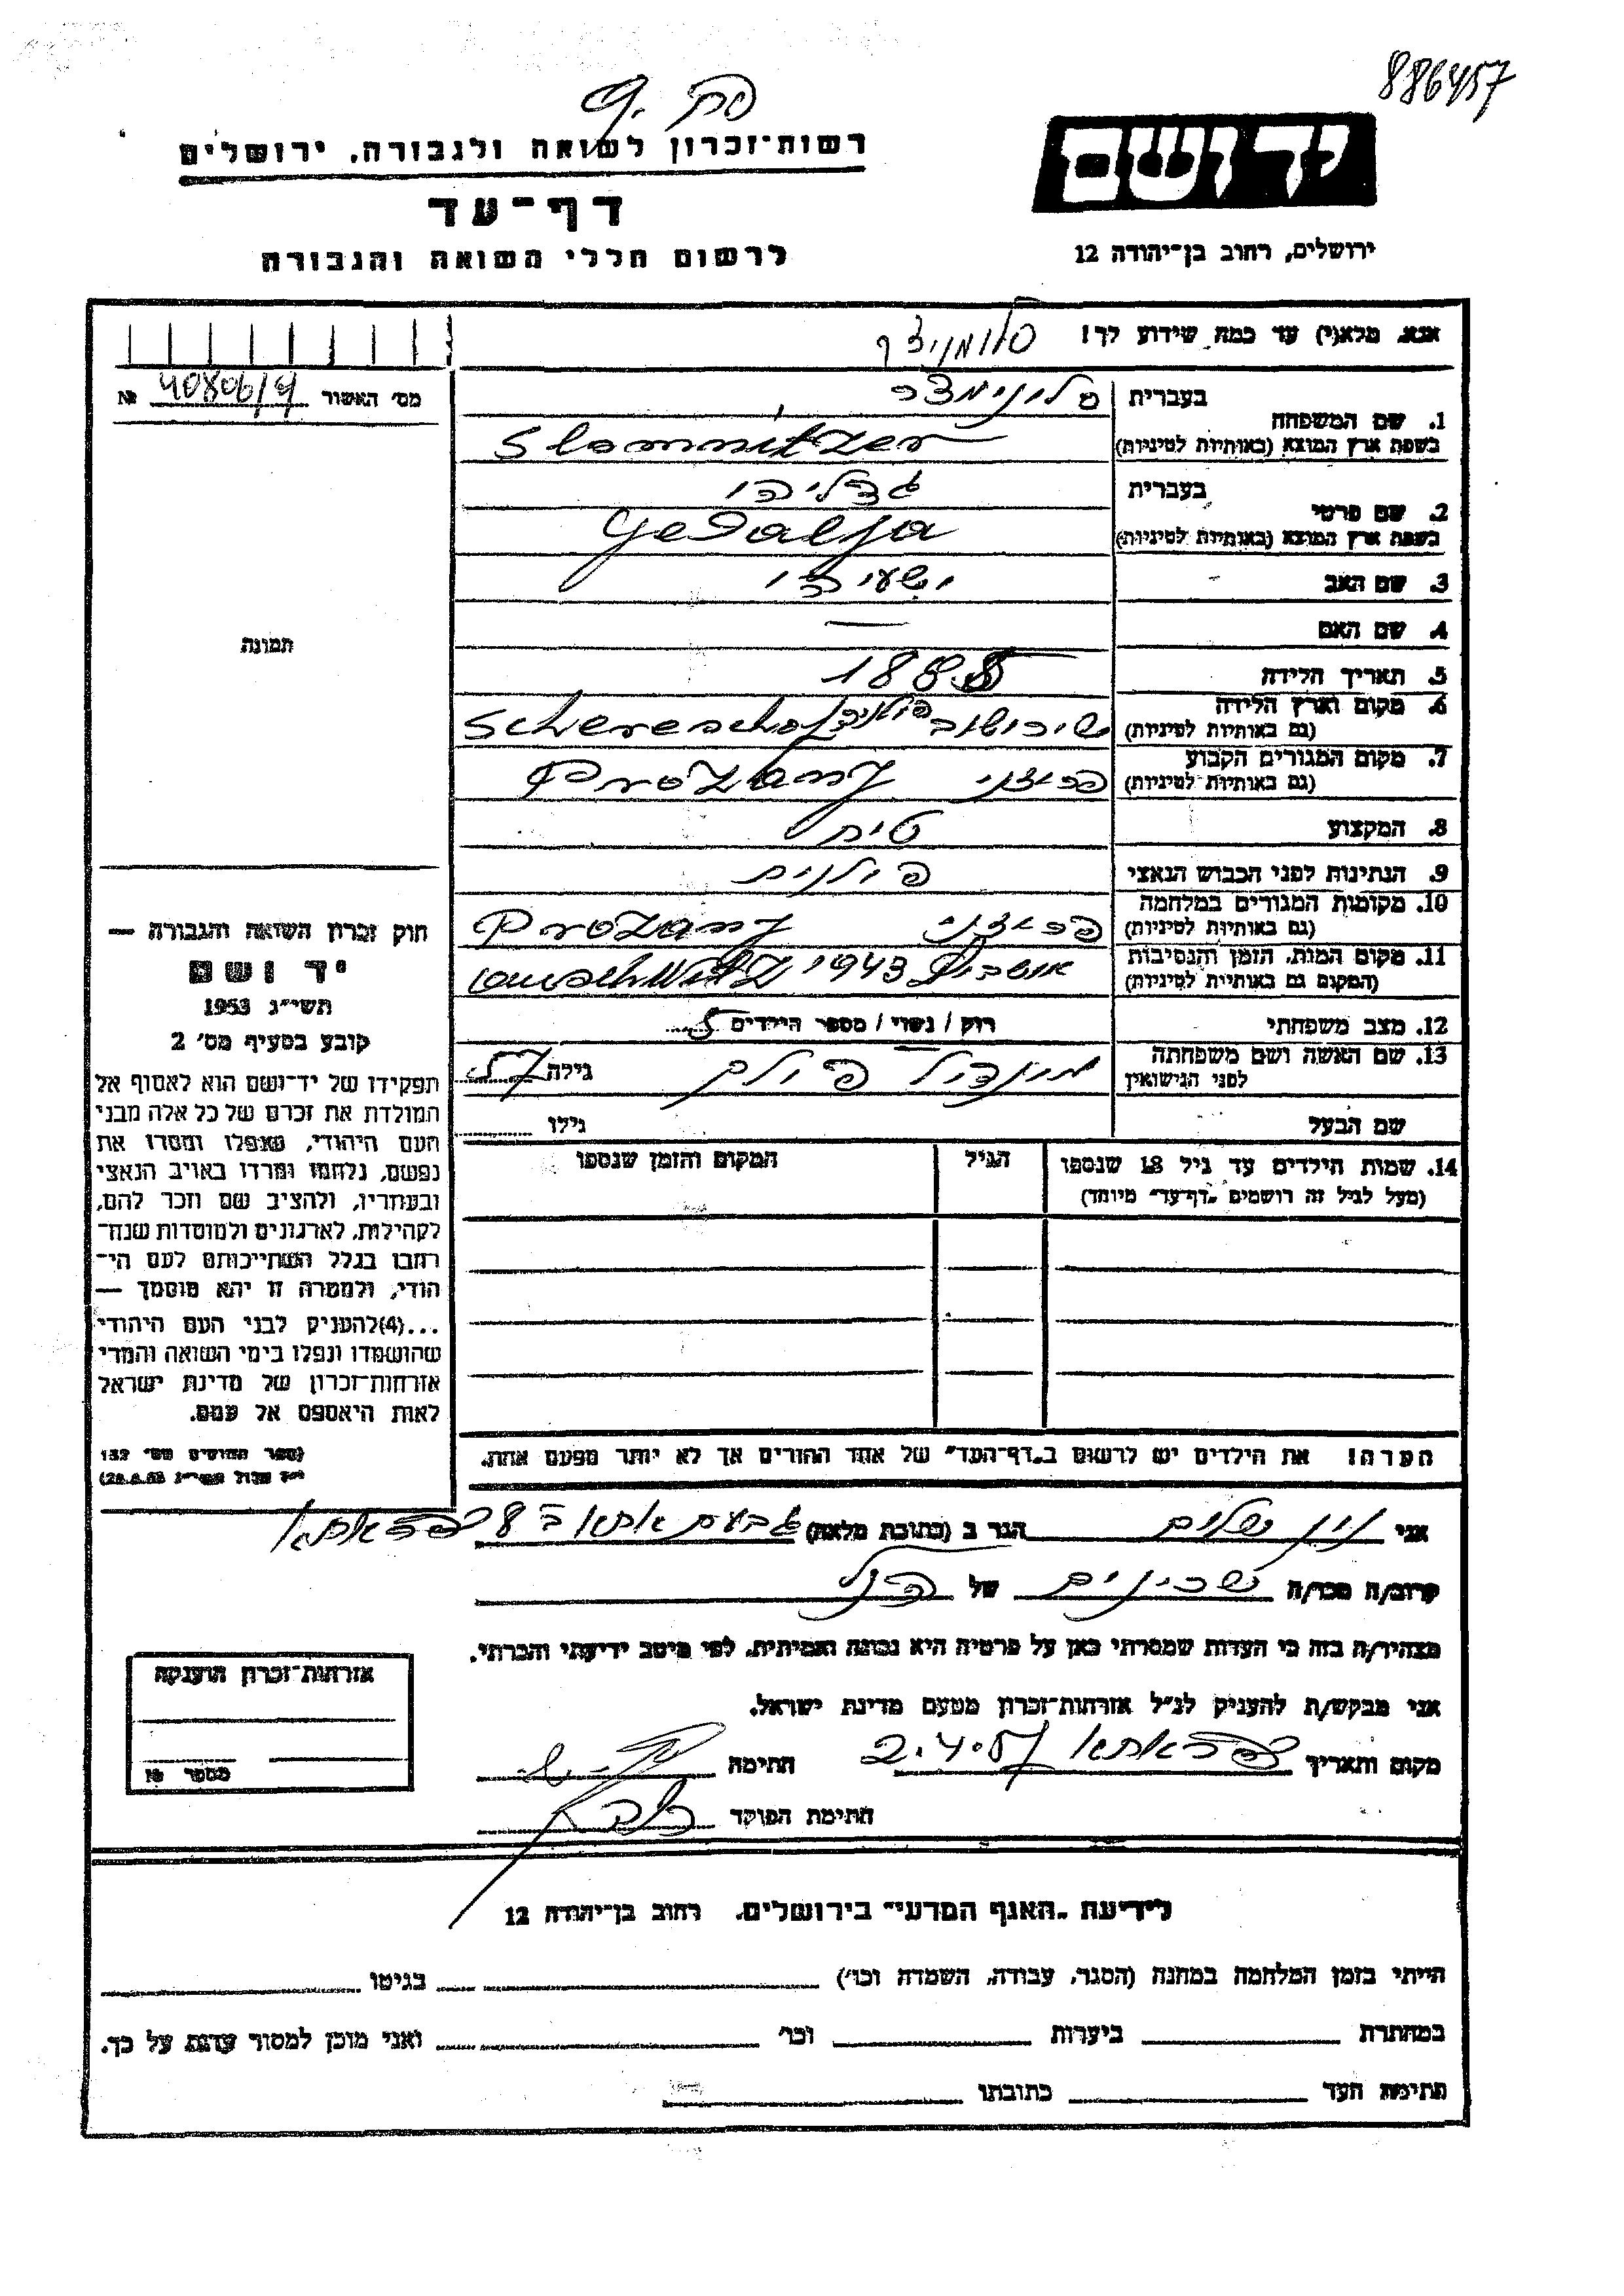 886457
יד ושם
ירושלים, רחוב בן־יהודה 12
רשות־זכרון לשואה ולגבורה, ירושלים
דף־עד
לרשום חללי השואה והגבורה
אנא, מלא(י) עד כמה שידוע לך!
סלומניצר
מס' האשור 40806/4 №
1. שם המשפחה
בעברית סלונימצר
בשפת ארץ המוצא (באותיות לטיניות) Slomnitzer
2. שם פרטי
בעברית גדליהו
בשפת ארץ המוצא (באותיות לטיניות) Gedalja
3. שם האב ישעיהו
4. שם האם —
5. תאריך הלידה 1885
6. מקום וארץ הלידה
(גם באותיות לטיניות) שירושוב פולניהSchereschof
7. מקום המגורים הקבוע
(גם באותיות לטיניות) פרוצני Prozany
8. המקצוע
9. הנתינות לפני הכבוש הנאצי פולנית
10. מקומות המגורים במלחמה
(גם באותיות לטיניות) פרוצני Prozany
11. מקום המות, הזמן והנסיבות
(המקום גם באותיות לטיניות) אושביץ 1943
12. מצב משפחתי רווק / נשוי / מספר הילדים 5
13. שם האשה ושם משפחתה
לפני הנישואין פולק גילה 57
שם הבעל גילו
14. שמות הילדים עד גיל 18 שנספו
(מעל לגיל זה רושמים „דף־עד" מיוחד)
הגיל
המקום והזמן שנספו
הערה! את הילדים יש לרשום ב„דף־העד" של אחד ההורים אך לא יותר מפעם אחת.
תמונה
חוק זכרון השואה והגבורה —
יד ושם
תשי"ג 1953
קובע בסעיף מס' 2
תפקידו של יד־ושם הוא לאסוף אל
המולדת את זכרם של כל אלה מבני
העם היהודי, שנפלו ומסרו את
נפשם, נלחמו ומרדו באויב הנאצי
ובעוזריו, ולהציב שם וזכר להם,
לקהילות, לארגונים ולמוסדות שנח־
רבו בגלל השתייכותם לעם הי־
הודי, ולמטרה זו יהא מוסמך —
...(4)להעניק לבני העם היהודי
שהושמדו ונפלו בימי השואה והמרי
אזרחות־זכרון של מדינת ישראל
לאות היאספם אל עמם.
(ספר החוקים מס' 132
י"ז אלול תשי"ג 28.8.53)
אני שלום הגר ב (כתובת מלאה) גבעת אתא ב 8 כפר אתא
קרוב/ה מכר/ה שכינים של הנ"ל
מצהיר/ה בזה כי העדות שמסרתי כאן על פרטיה היא נכונה ואמיתית, לפי מיטב ידיעתי והכרתי.
אני מבקש/ת להעניק לנ"ל אזרחות־זכרון מטעם מדינת ישראל.
מקום ותאריך כפר אתא 2.4.57 חתימה
חתימת הפוקד
אזרחות־זכרון הוענקה
מספר №
לידיעת „האגף המדעי" בירושלים, רחוב בן־יהודה 12
הייתי בזמן המלחמה במחנה (הסגר, עבודה, השמדה וכו') בגיטו
במחתרת ביערות וכו' ואני מוכן למסור עדות על כך.
חתימת העד כתובתו